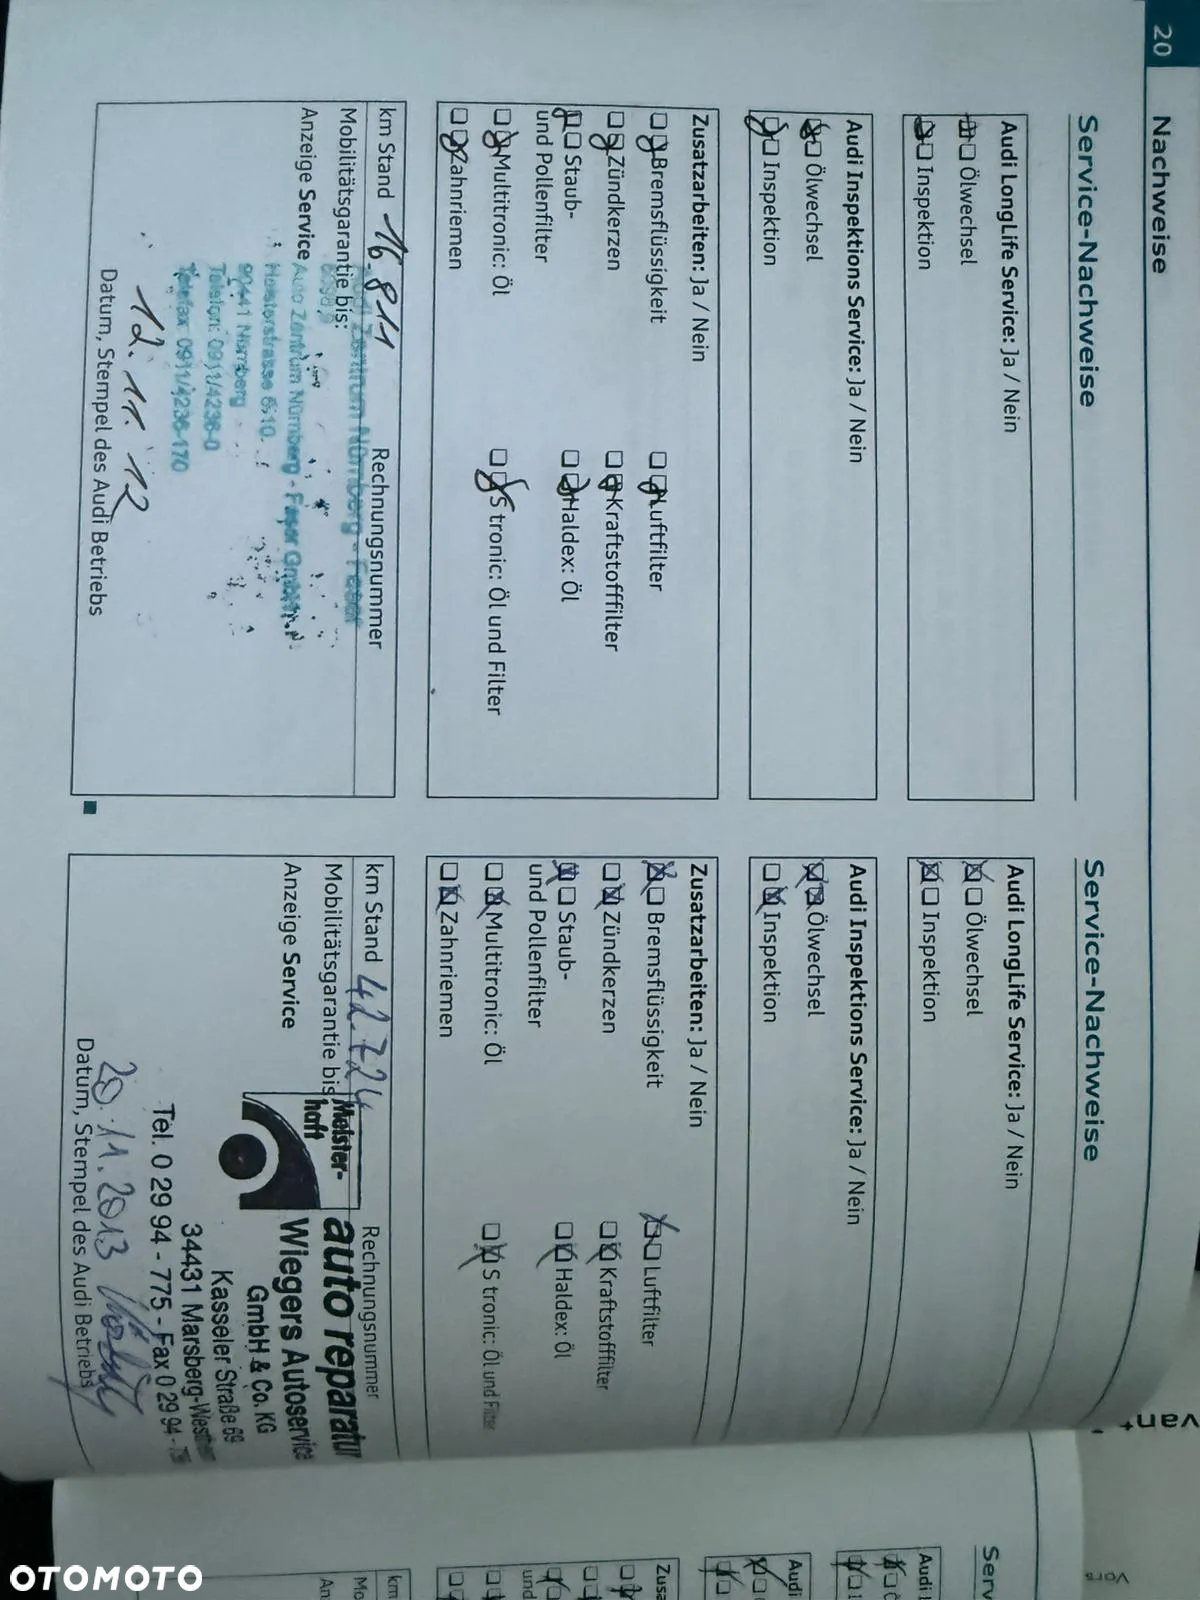 20
Nachweise
Service-Nachweise
Audi LongLife Service: Ja / Nein
Ölwechsel
Inspektion
Audi Inspektions Service: Ja / Nein
Ölwechsel
Inspektion
Zusatzarbeiten: Ja / Nein
Bremsflüssigkeit
Luftfilter
Zündkerzen
Kraftstofffilter
Staub-
und Pollenfilter
Haldex: Öl
Multitronic: Öl
S tronic: Öl und Filter
Zahnriemen
km Stand 16.811
Rechnungsnummer
Mobilitätsgarantie bis:
Anzeige Service
Zentrum Nürnberg - Feser
Auto Zentrum Nürnberg - Feser GmbH
90441 Nürnberg
Telefon: 0911/4236-0
Telefax: 0911/4236-170
12.11.12
Datum, Stempel des Audi Betriebs
Service-Nachweise
Audi LongLife Service: Ja / Nein
Ölwechsel
Inspektion
Audi Inspektions Service: Ja / Nein
Ölwechsel
Inspektion
Zusatzarbeiten: Ja / Nein
Bremsflüssigkeit
Luftfilter
Zündkerzen
Kraftstofffilter
Staub-
und Pollenfilter
Haldex: Öl
Multitronic: Öl
S tronic: Öl und Filter
Zahnriemen
km Stand 42.724
Rechnungsnummer
Mobilitätsgarantie bis
Anzeige Service
Meister-
haft
auto reparatur
Wiegers Autoservice
GmbH & Co. KG
Kasseler Straße 69
34431 Marsberg-
Tel. 0 29 94 - 775 - Fax 0 29 94 -
20.11.2013
Datum, Stempel des Audi Betriebs
Serv
Audi
Audi
Zusa
und
km
Mo
An
OTOMOTO